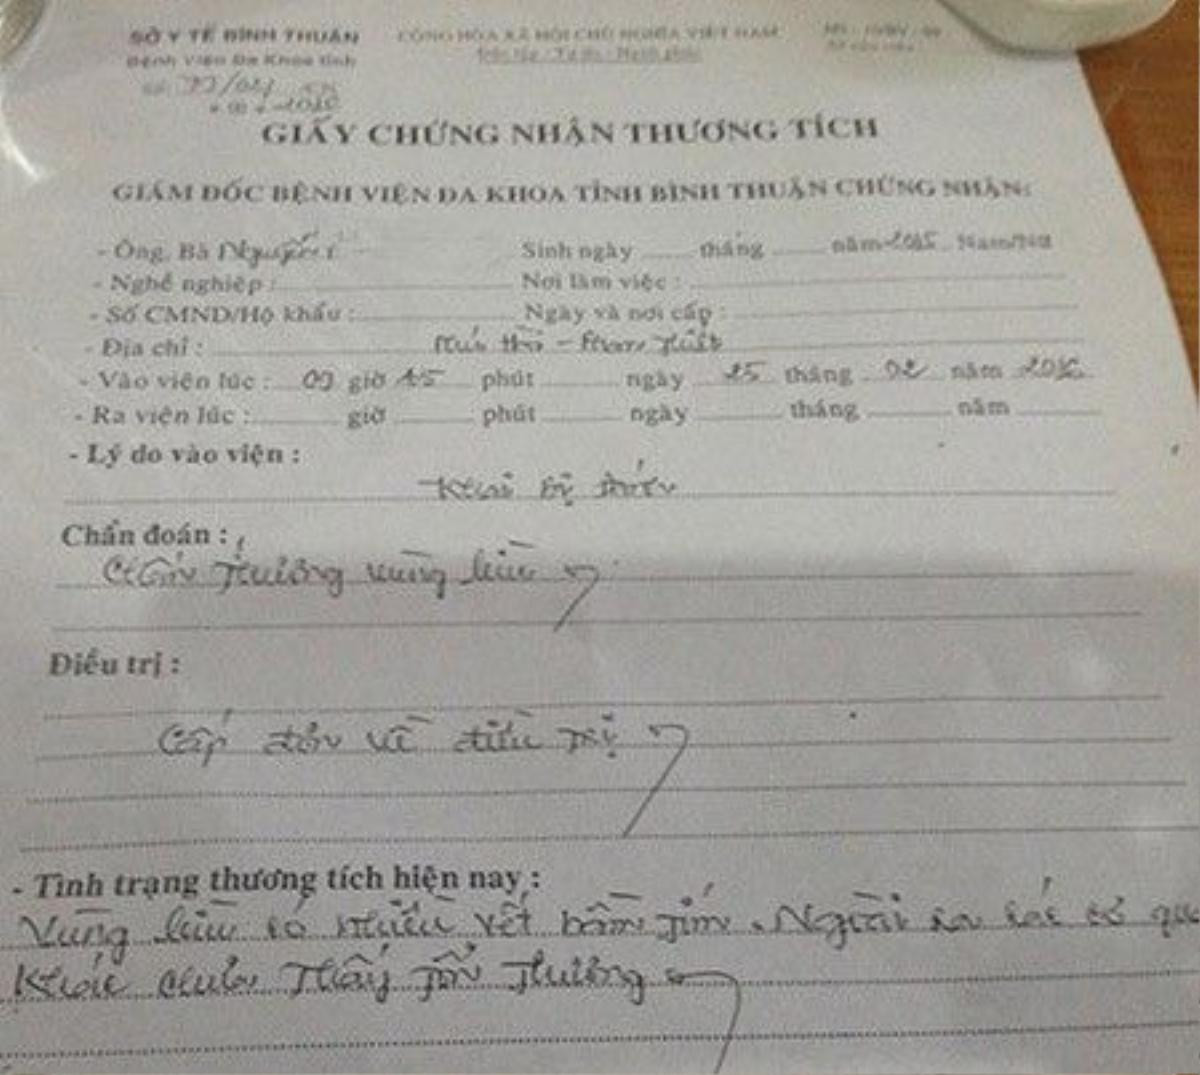 SỞ Y TẾ BÌNH THUẬN
CỘNG HÒA XÃ HỘI CHỦ NGHĨA VIỆT NAM
Bệnh Viện Đa Khoa tỉnh
Độc lập - Tự do - Hạnh phúc
GIẤY CHỨNG NHẬN THƯƠNG TÍCH
GIÁM ĐỐC BỆNH VIỆN ĐA KHOA TỈNH BÌNH THUẬN CHỨNG NHẬN:
- Ông, Bà Nguyễn Sinh ngày tháng năm 2015 Nam/Nữ
- Nghề nghiệp : Nơi làm việc :
- Số CMND/Hộ khẩu : Ngày và nơi cấp :
- Địa chỉ : - Phan Thiết
- Vào viện lúc : 09 giờ 15 phút ngày 25 tháng 02 năm
- Ra viện lúc : giờ phút ngày tháng năm
- Lý do vào viện :
Khai bị đánh
Chẩn đoán :
Chấn thương vùng
Điều trị :
Cấp đơn về điều trị
- Tình trạng thương tích hiện nay :
Vùng có nhiều vết bầm tím. Ngoài ra các cơ qu
khác chưa thấy tổn thương